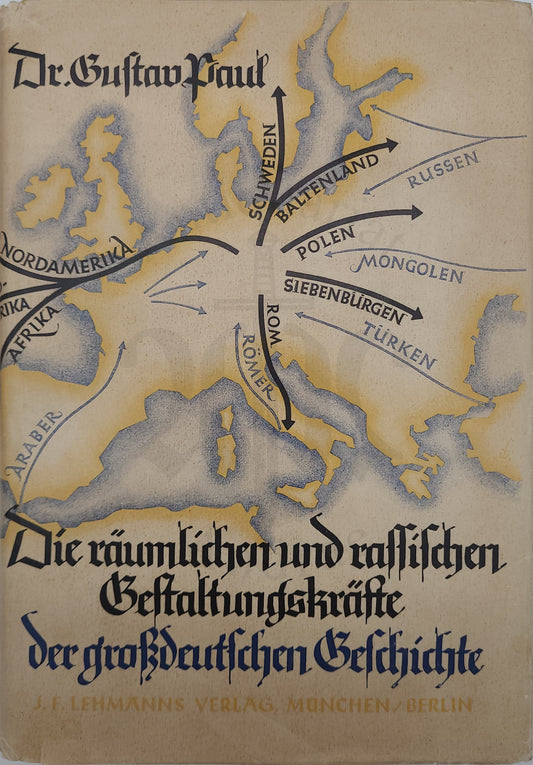 Dr. Gustav Paul
SCHWEDEN
BALTENLAND
RUSSEN
POLEN
MONGOLEN
NORDAMERIKA
SIEBENBÜRGEN
RIKA
AFRIKA
ROM
TÜRKEN
RÖMER
ARABER
Die räumlichen und rassischen
Gestaltungskräfte
der großdeutschen Geschichte
J. F. LEHMANNS VERLAG, MÜNCHEN/BERLIN